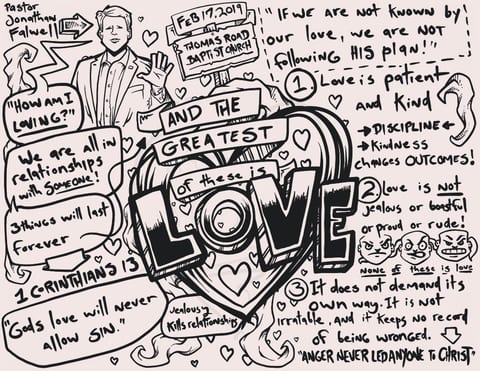 Pastor
Jonathan
Falwell
Feb 17, 2019
Thomas Road
Baptist Church
"How am I
loving?"
We are all in
relationships
with someone!
3 things will last
forever
1 Corinthians 13
"Gods love will never
allow sin."
And the
greatest
of these is
LOVE
Jealousy
kills relationships
"If we are not known by
our love, we are not
following HIS plan!"
1 Love is patient
and kind
Discipline
Kindness
changes outcomes!
2 Love is not
jealous or boastful
or proud or rude!
none of these is love
3 It does not demand its
own way. It is not
irratable, and it keeps no record
of being wronged.
"Anger never led anyone to Christ"